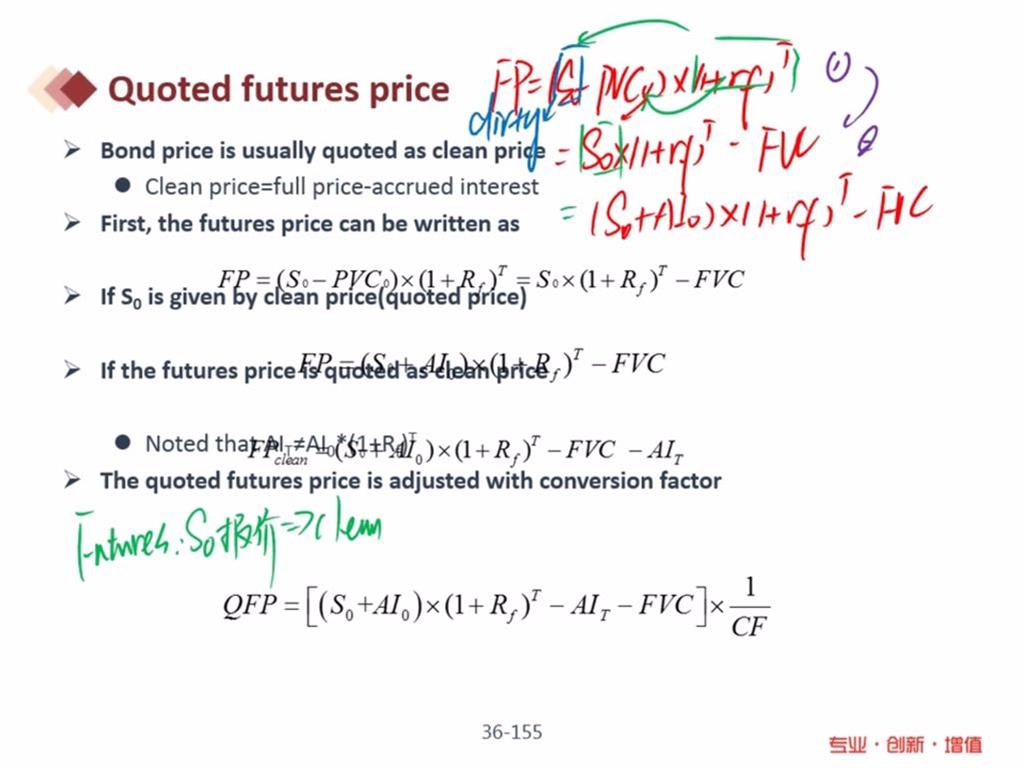 Quoted futures price
FP=(S₀-PVC₀)×(1+rf)ᵀ ①
dirty
➢ Bond price is usually quoted as clean price
=S₀×(1+rf)ᵀ - FVC ②
● Clean price=full price-accrued interest
=(S₀+AI₀)×(1+rf)ᵀ-FVC
➢ First, the futures price can be written as
FP = (S₀ − PVC₀)×(1+R_f)ᵀ = S₀×(1+R_f)ᵀ − FVC
➢ If S₀ is given by clean price(quoted price)
FP = (S₀ + AI₀)×(1+R_f)ᵀ − FVC
➢ If the futures price is quoted as clean price
● Noted that AI_T≠AI₀*(1+R_f)ᵀ
FP_clean = (S₀ + AI₀)×(1+R_f)ᵀ − FVC − AI_T
➢ The quoted futures price is adjusted with conversion factor
Futures: S₀报价=>clean
QFP = [(S₀+AI₀)×(1+R_f)ᵀ − AI_T − FVC]× 1/CF
36-155
专业·创新·增值